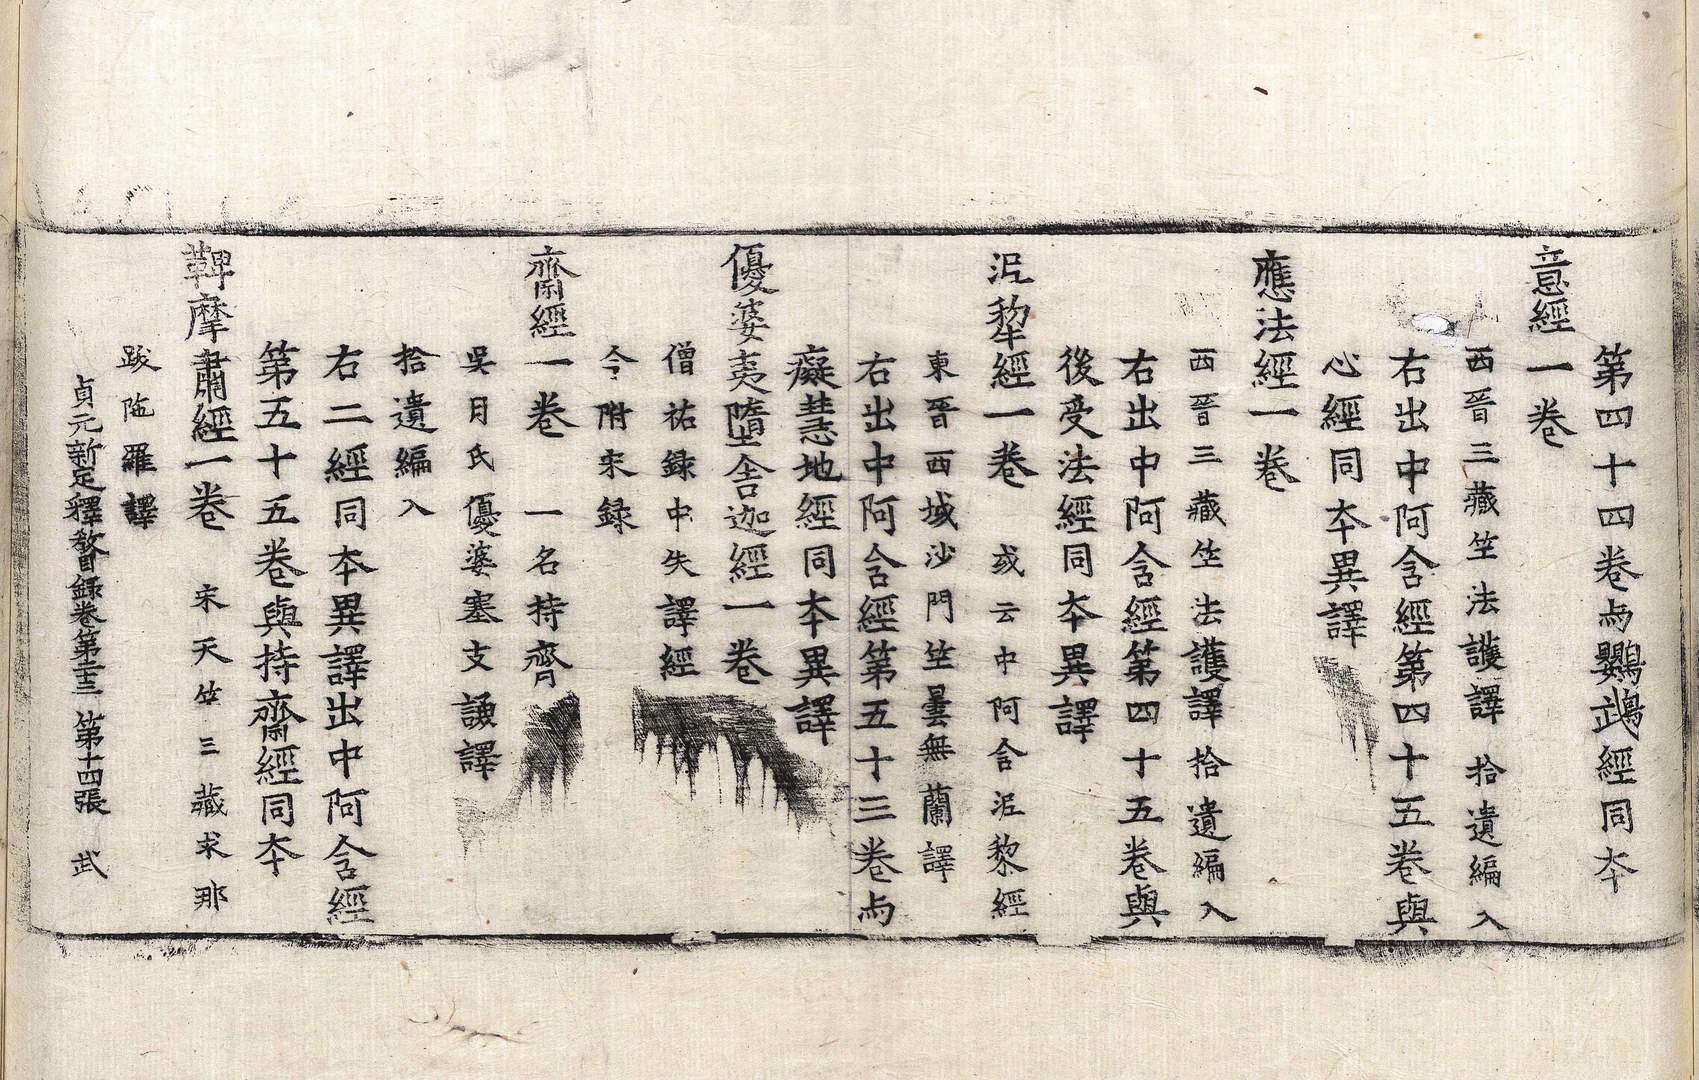 第四十四卷与鸚鵡經同夲
意經一卷
西晉三藏竺法護譯 拾遺編入
右出中阿含經第四十五卷與
心經同夲異譯
應法經一卷
西晉三藏竺法護譯拾遺編入
右出中阿含經第四十五卷與
後受法經同夲異譯
泥犂經一卷 或云中阿含泥黎經
東晉西域沙門竺曇無蘭譯
右出中阿含經第五十三卷与
癡慧地經同夲異譯
優婆夷墮舍迦經一卷
僧祐録中失譯經
今附宋録
齋經一卷 一名持齊
吳月氏優婆塞支謙譯
拾遺編入
右二經同夲異譯出中阿含經
第五十五卷與持齋經同夲
鞞摩肅經一卷 宋天竺三藏求那
跋陁羅譯
貞元新定釋教目録卷第三十三 第十四張 武